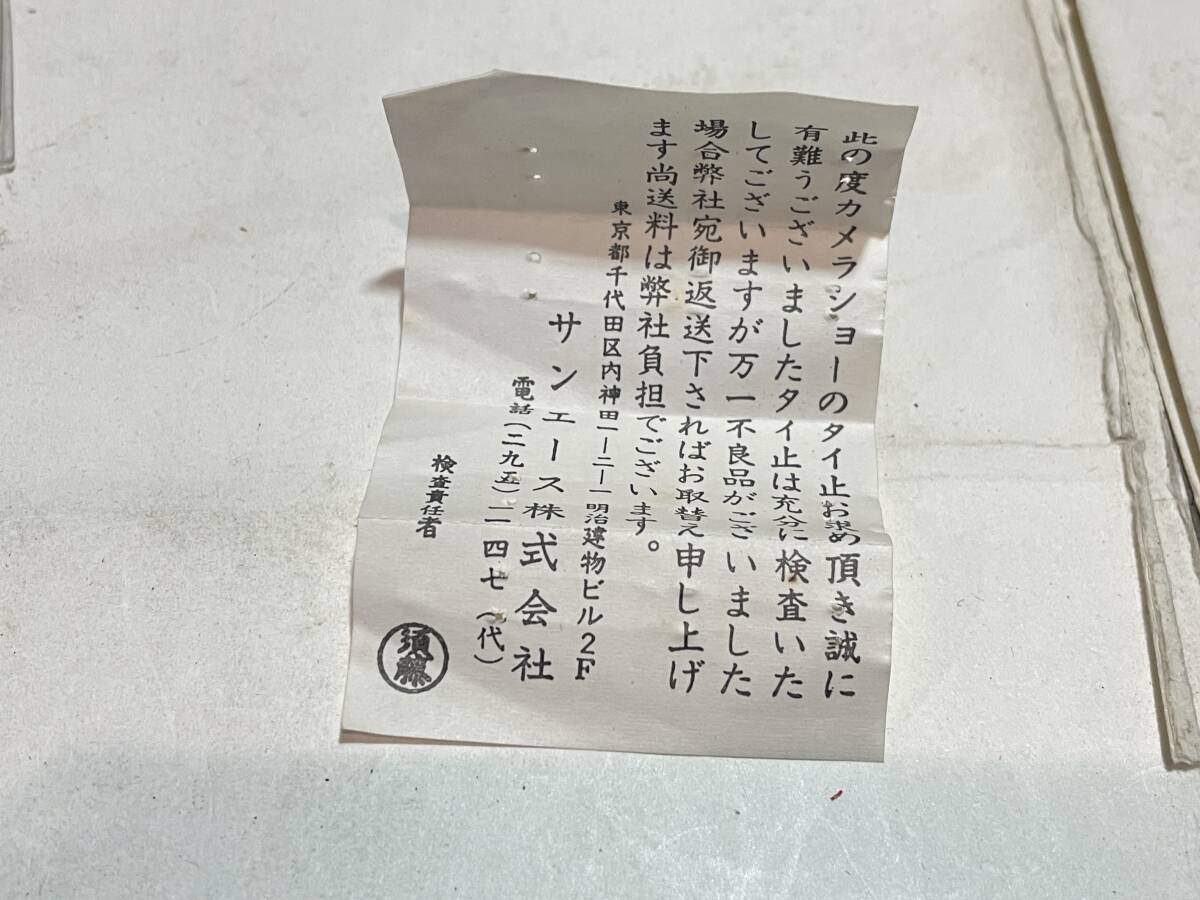 此の度カメラショーのタイ止お求め頂き誠に
有難うございましたタイ止は充分に検査いた
してございますが万一不良品がございました
場合弊社宛御返送下さればお取替え申し上げ
ます尚送料は弊社負担でございます。
東京都千代田区内神田一ー二ー一明治建物ビル2F
サンエース株式会社
電話(二九五)二一四七(代)
検査責任者
須藤